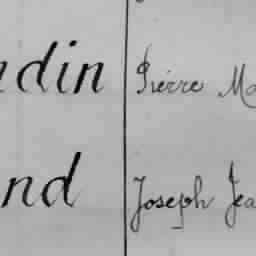 din Pierre Ma
nd Joseph Jea